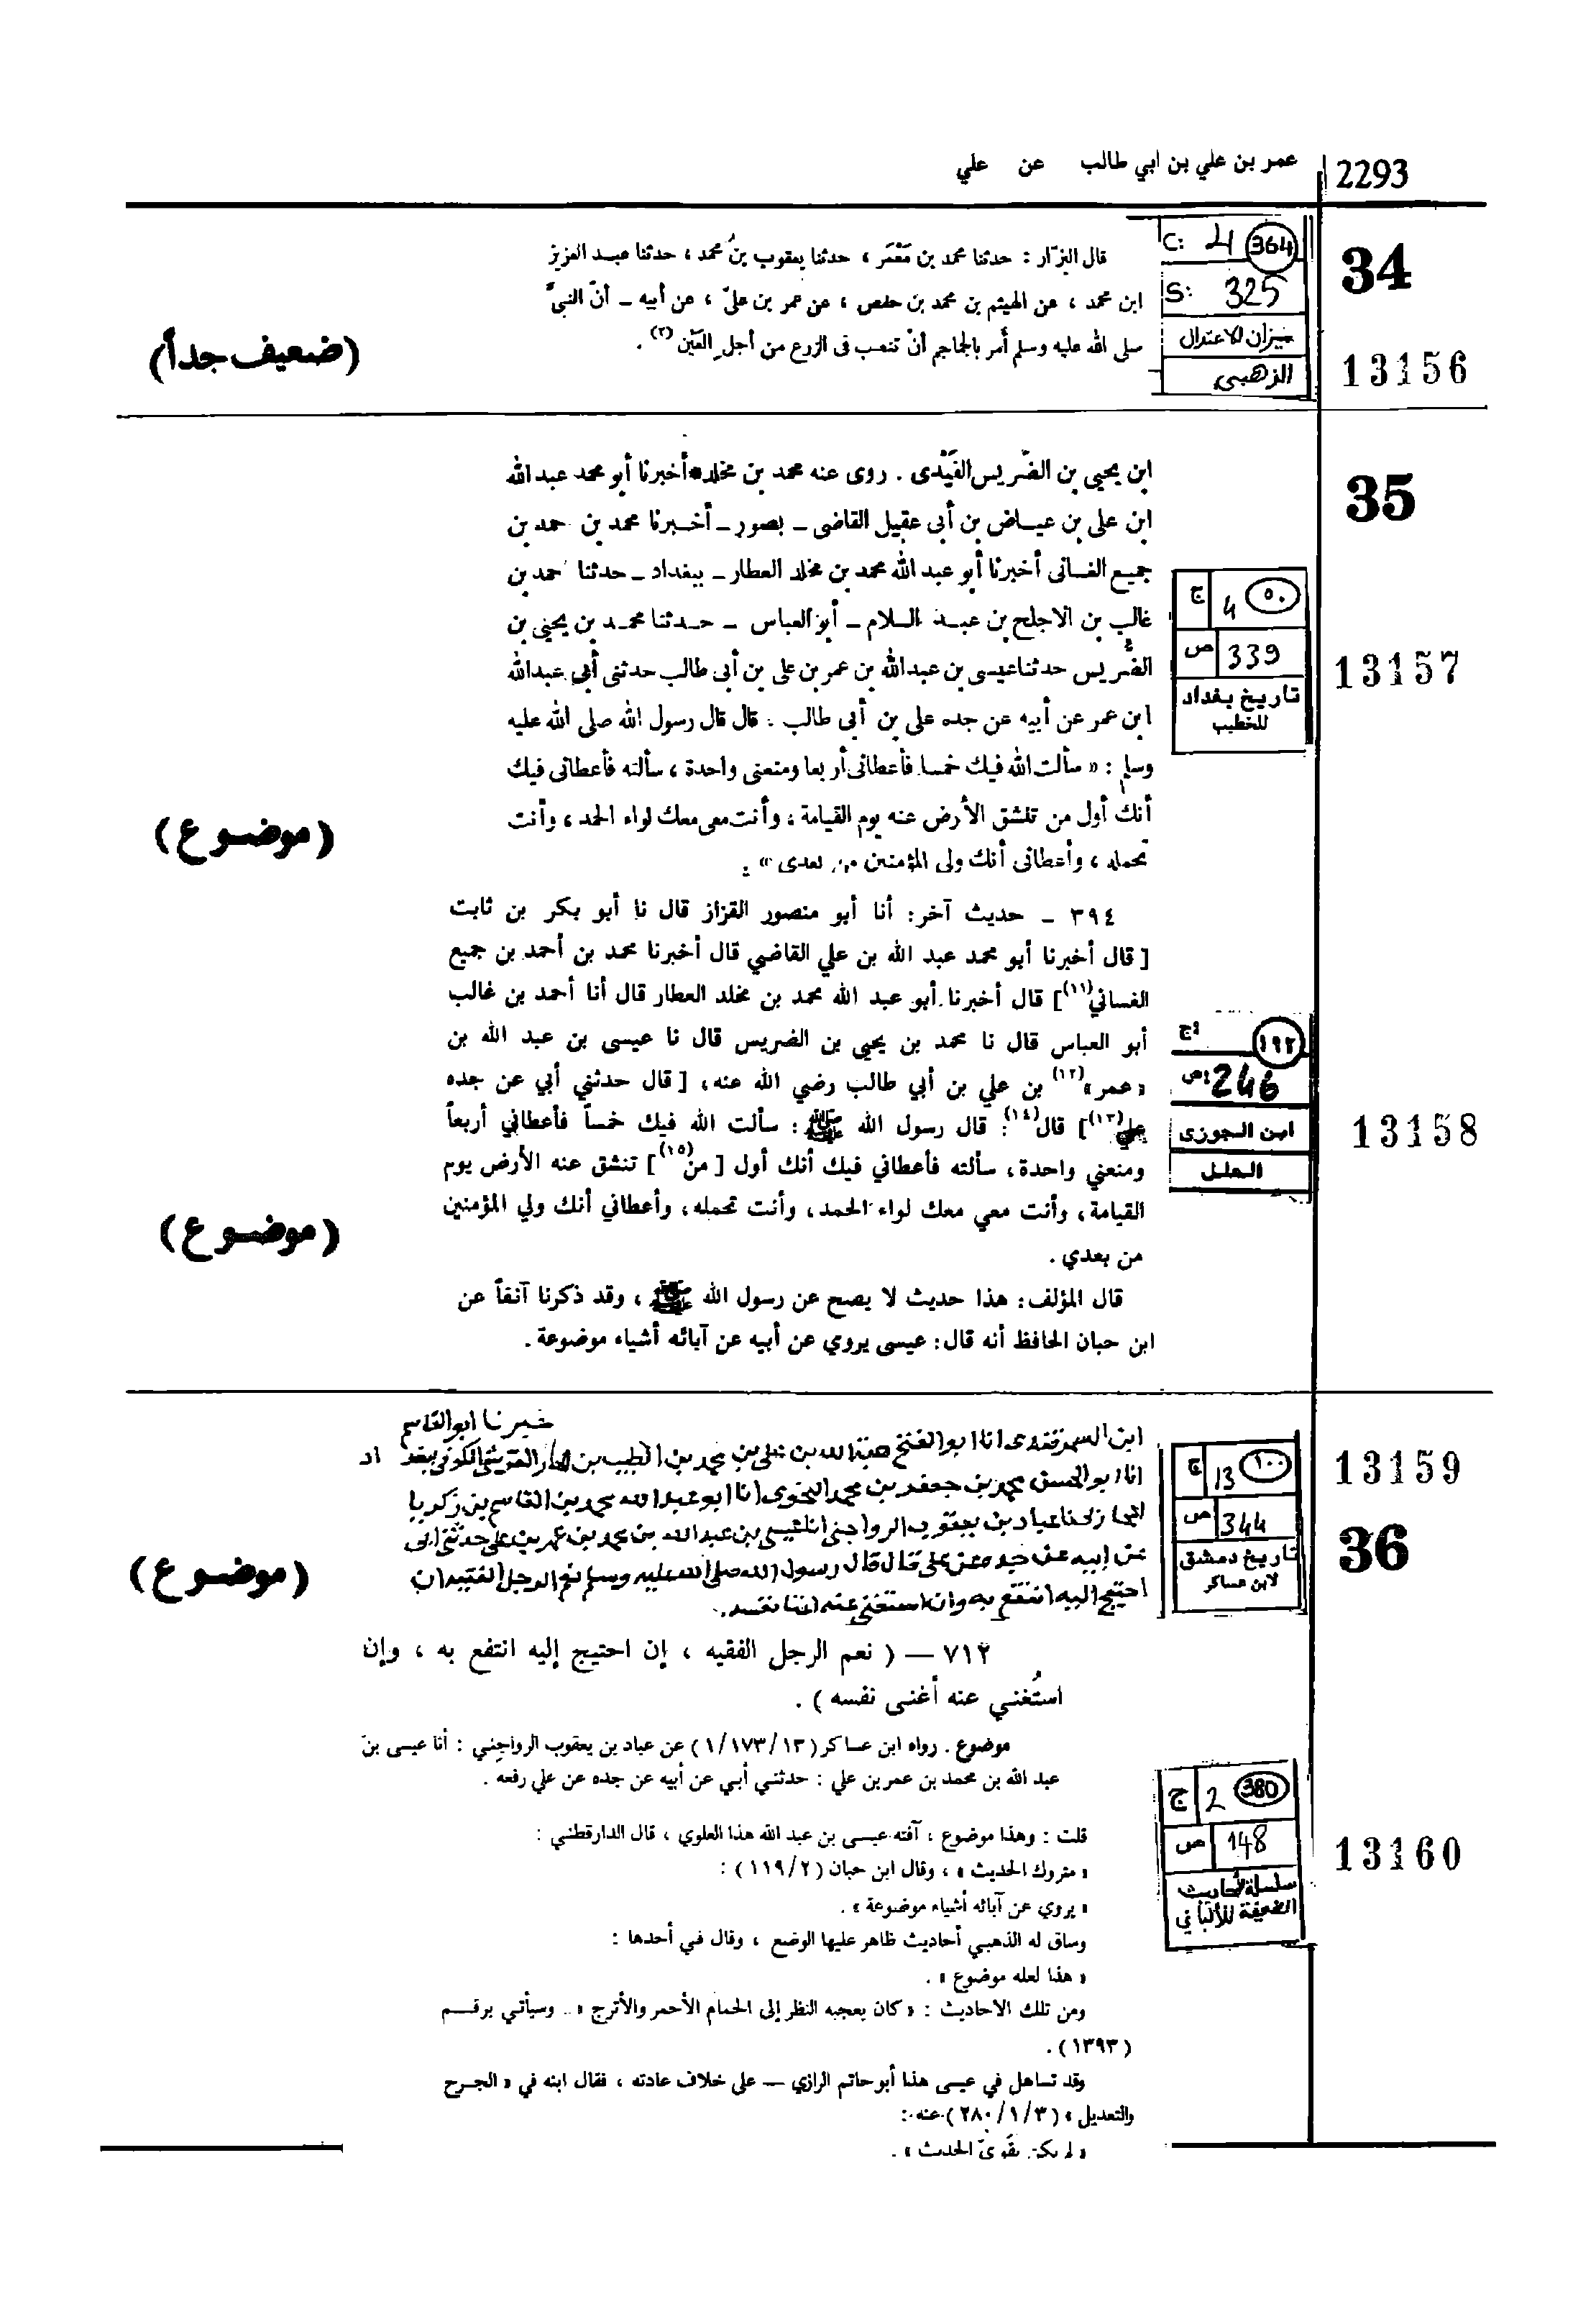 2293 عمر بن علي بن ابي طالب عن علي
34
13156
C: 4 364
S: 325
ميزان الاعتدال
الذهبي
قال البزّار : حدثنا محمد بن مَعْمَر ، حدثنا يعقوب بنُ محمد ، حدثنا عبد العزيز
ابن محمد ، عن الهيثم بن محمد بن حفص ، عن عمر بن عليّ ، عن أبيه - أنّ النبيَّ
صلى الله عليه وسلم أمر بالجماجم أنْ تنصب فى الزرع من أجلِ العَيْن (٢) .
(ضعيف جداً)
35
13157
ج 4 ٥٠
ص 339
تاريخ بغداد
للخطيب
ابن يحيي بن الضّريس الفَيْدى . روى عنه محمد بن مخلد * أخبرنا أبو محمد عبد الله
ابن على بن عياض بن أبى عقيل القاضى - بصور - أخبرنا محمد بن حمد بن
جميع الغسانى أخبرنا أبو عبد الله محمد بن مخلد العطار - ببغداد - حدثنا حمد بن
غالب بن الاجلح بن عبد السلام - أبو العباس - حدثنا محمد بن يحيى بن
الضُّريس حدثنا عيسى بن عبدالله بن عمر بن على بن أبى طالب حدثنى أبى عبدالله
ابن عمر عن أبيه عن جده على بن أبى طالب . قال قال رسول الله صلى الله عليه
وسلم : « سألت الله فيك خمسا فأعطانى أربعا ومنعنى واحدة ، سألته فأعطانى فيك
أنك أول من تنشق الأرض عنه يوم القيامة ، وأنت معى معك لواء الحمد ، وأنت
تحمله ، وأعطانى أنك ولى المؤمنين من بعدى » .
(موضوع)
13158
ج: ١٩٢
ص: 246
ابن الجوزى
العلل
٣٩٤ - حديث آخر: أنا أبو منصور القزاز قال نا أبو بكر بن ثابت
[ قال أخبرنا أبو محمد عبد الله بن علي القاضي قال أخبرنا محمد بن أحمد بن جميع
الغساني(١١)] قال أخبرنا أبو عبد الله محمد بن مخلد العطار قال أنا أحمد بن غالب
أبو العباس قال نا محمد بن يحيي بن الضريس قال نا عيسى بن عبد الله بن
«عمر»(١٢) بن علي بن أبي طالب رضي الله عنه، [ قال حدثني أبي عن جده
علي(١٣)] قال(١٤): قال رسول الله ﷺ : سألت الله فيك خمساً فأعطاني أربعاً
ومنعني واحدة، سألته فأعطاني فيك أنك أول [ من(١٥)] تنشق عنه الأرض يوم
القيامة، وأنت معي معك لواء الحمد، وأنت تحمله، وأعطاني أنك ولي المؤمنين
من بعدي .
(موضوع)
قال المؤلف: هذا حديث لا يصح عن رسول الله ﷺ ، وقد ذكرنا آنفاً عن
ابن حبان الحافظ أنه قال: عيسى يروي عن أبيه عن آبائه أشياء موضوعة.
13159
36
ج 13 ١٠٠
ص 344
تاريخ دمشق
لابن عساكر
خبرنا ابو القاسم
ابن السمرقندى انا ابو الفتح هبة الله بن على بن محمد بن الطيب بن القرشى الكوفى ببغداد
انا ابو الحسن محمد بن جعفر بن محمد النحوى انا ابو عبد الله محمد بن القاسم بن زكريا
المحاربى نا عباد بن يعقوب الرواجنى انا عيسى بن عبد الله بن محمد بن عمر بن على حدثنى ابى
عن ابيه عن جده عن على قال قال رسول الله صلى الله عليه وسلم نعم الرجل الفقيه ان
احتيج اليه انتفع به وان استغنى عنه اغنا نفسه.
(موضوع)
٧١٢ — ( نعم الرجل الفقيه ، إن احتيج إليه انتفع به ، وإن
استُغني عنه أغنى نفسه ) .
موضوع . رواه ابن عساكر ( ١٣/ ١٧٣/ ١ ) عن عباد بن يعقوب الرواجِني : أنا عيسى بن
عبد الله بن محمد بن عمر بن علي : حدثني أبي عن أبيه عن جده عن علي رفعه .
13160
ج 2 380
ص 148
سلسلة الأحاديث
الضعيفة للألباني
قلت : وهذا موضوع ، آفته عيسى بن عبد الله هذا العلوي ، قال الدارقطني :
« متروك الحديث » ، وقال ابن حبان ( ٢/ ١١٩ ) :
« يروي عن آبائه أشياء موضوعة » .
وساق له الذهبي أحاديث ظاهر عليها الوضع ، وقال في أحدها :
« هذا لعله موضوع » .
ومن تلك الاحاديث : « كان يعجبه النظر إلى الحمام الأحمر والأترج » .. وسيأتي برقم
( ١٣٩٣ ) .
وقد تساهل في عيسى هذا أبو حاتم الرازي — على خلاف عادته ، فقال ابنه في « الجرح
والتعديل » ( ٣/ ١/ ٢٨٠ ) عنه :
« لم يكن بقويّ الحديث » .